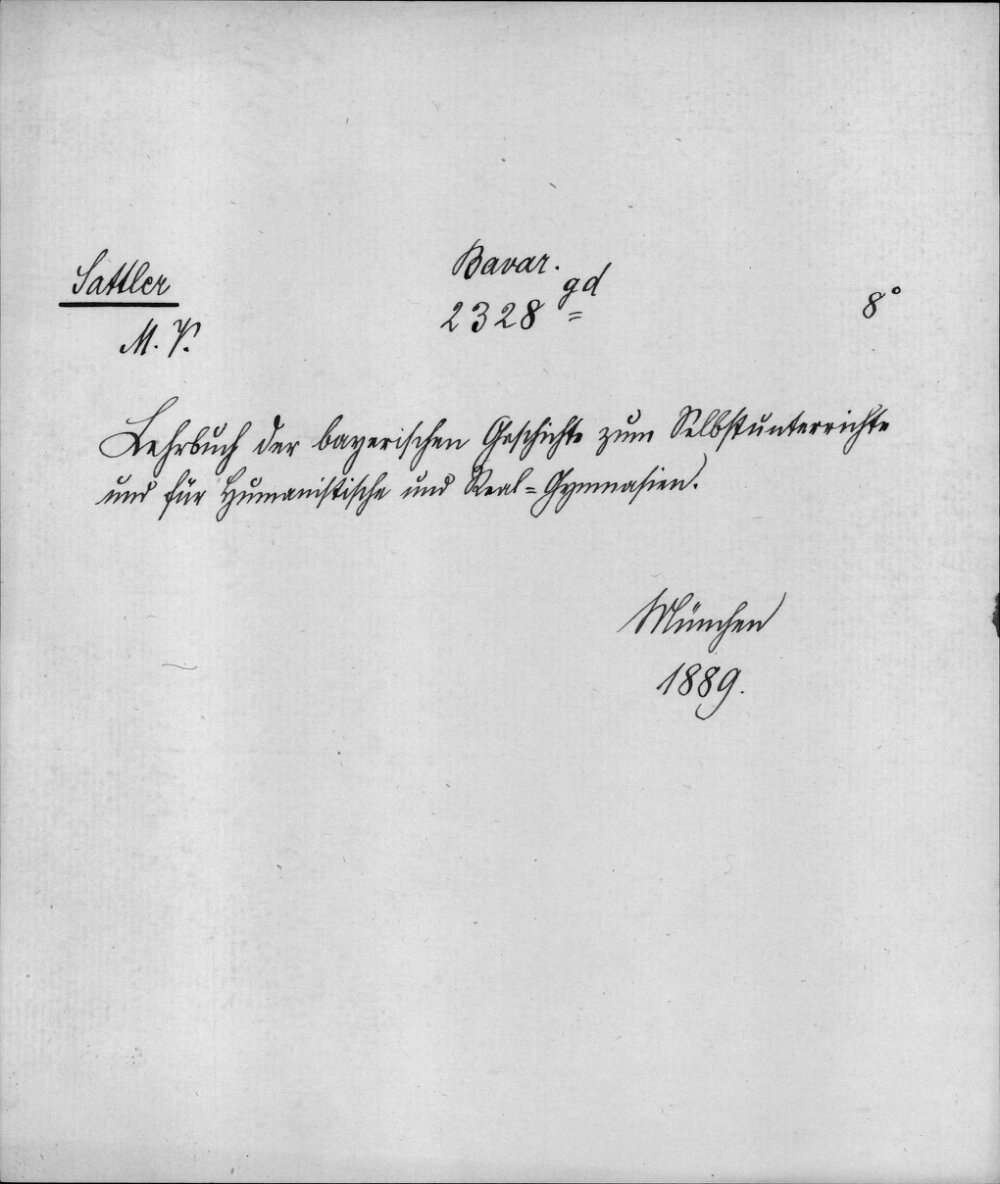 Sattler
M. V.
Bavar.
2328 gd
8°
Lehrbuch der bayerischen Geschichte zum Selbstunterrichte
und für Humanistische und Real=Gymnasien.
München
1889.